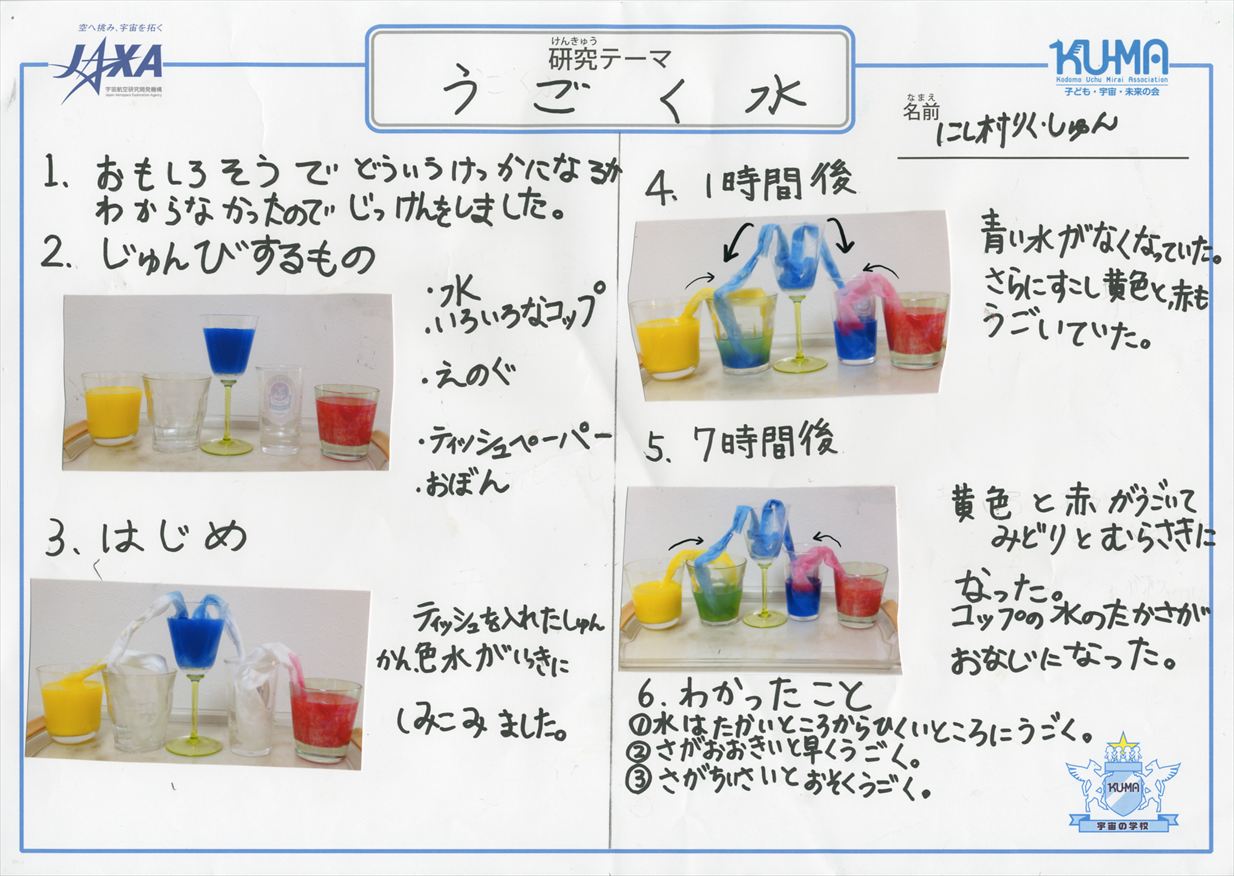 空へ挑み、宇宙を拓く
JAXA
宇宙航空研究開発機構
Japan Aerospace Exploration Agency
けんきゅう
研究テーマ
うごく水
KU-MA
Kodomo Uchu Mirai Association
子ども・宇宙・未来の会
なまえ
名前
にし村りく・しゅん
1. おもしろそうで どういうけっかになるか
わからなかったので じっけんをしました。
2. じゅんびするもの
・水
・いろいろなコップ
・えのぐ
・ティッシュペーパー
・おぼん
3. はじめ
ティッシュを入れたしゅん
かん、色水がいっきに
しみこみました。
4. 1時間後
青い水がなくなっていた。
さらにすこし黄色と、赤も
うごいていた。
5. 7時間後
黄色と赤がうごいて
みどりとむらさきに
なった。
コップの水のたかさが
おなじになった。
6. わかったこと
①水はたかいところからひくいところにうごく。
②さがおおきいと早くうごく。
③さがちいさいとおそくうごく。
KU-MA
宇宙の学校